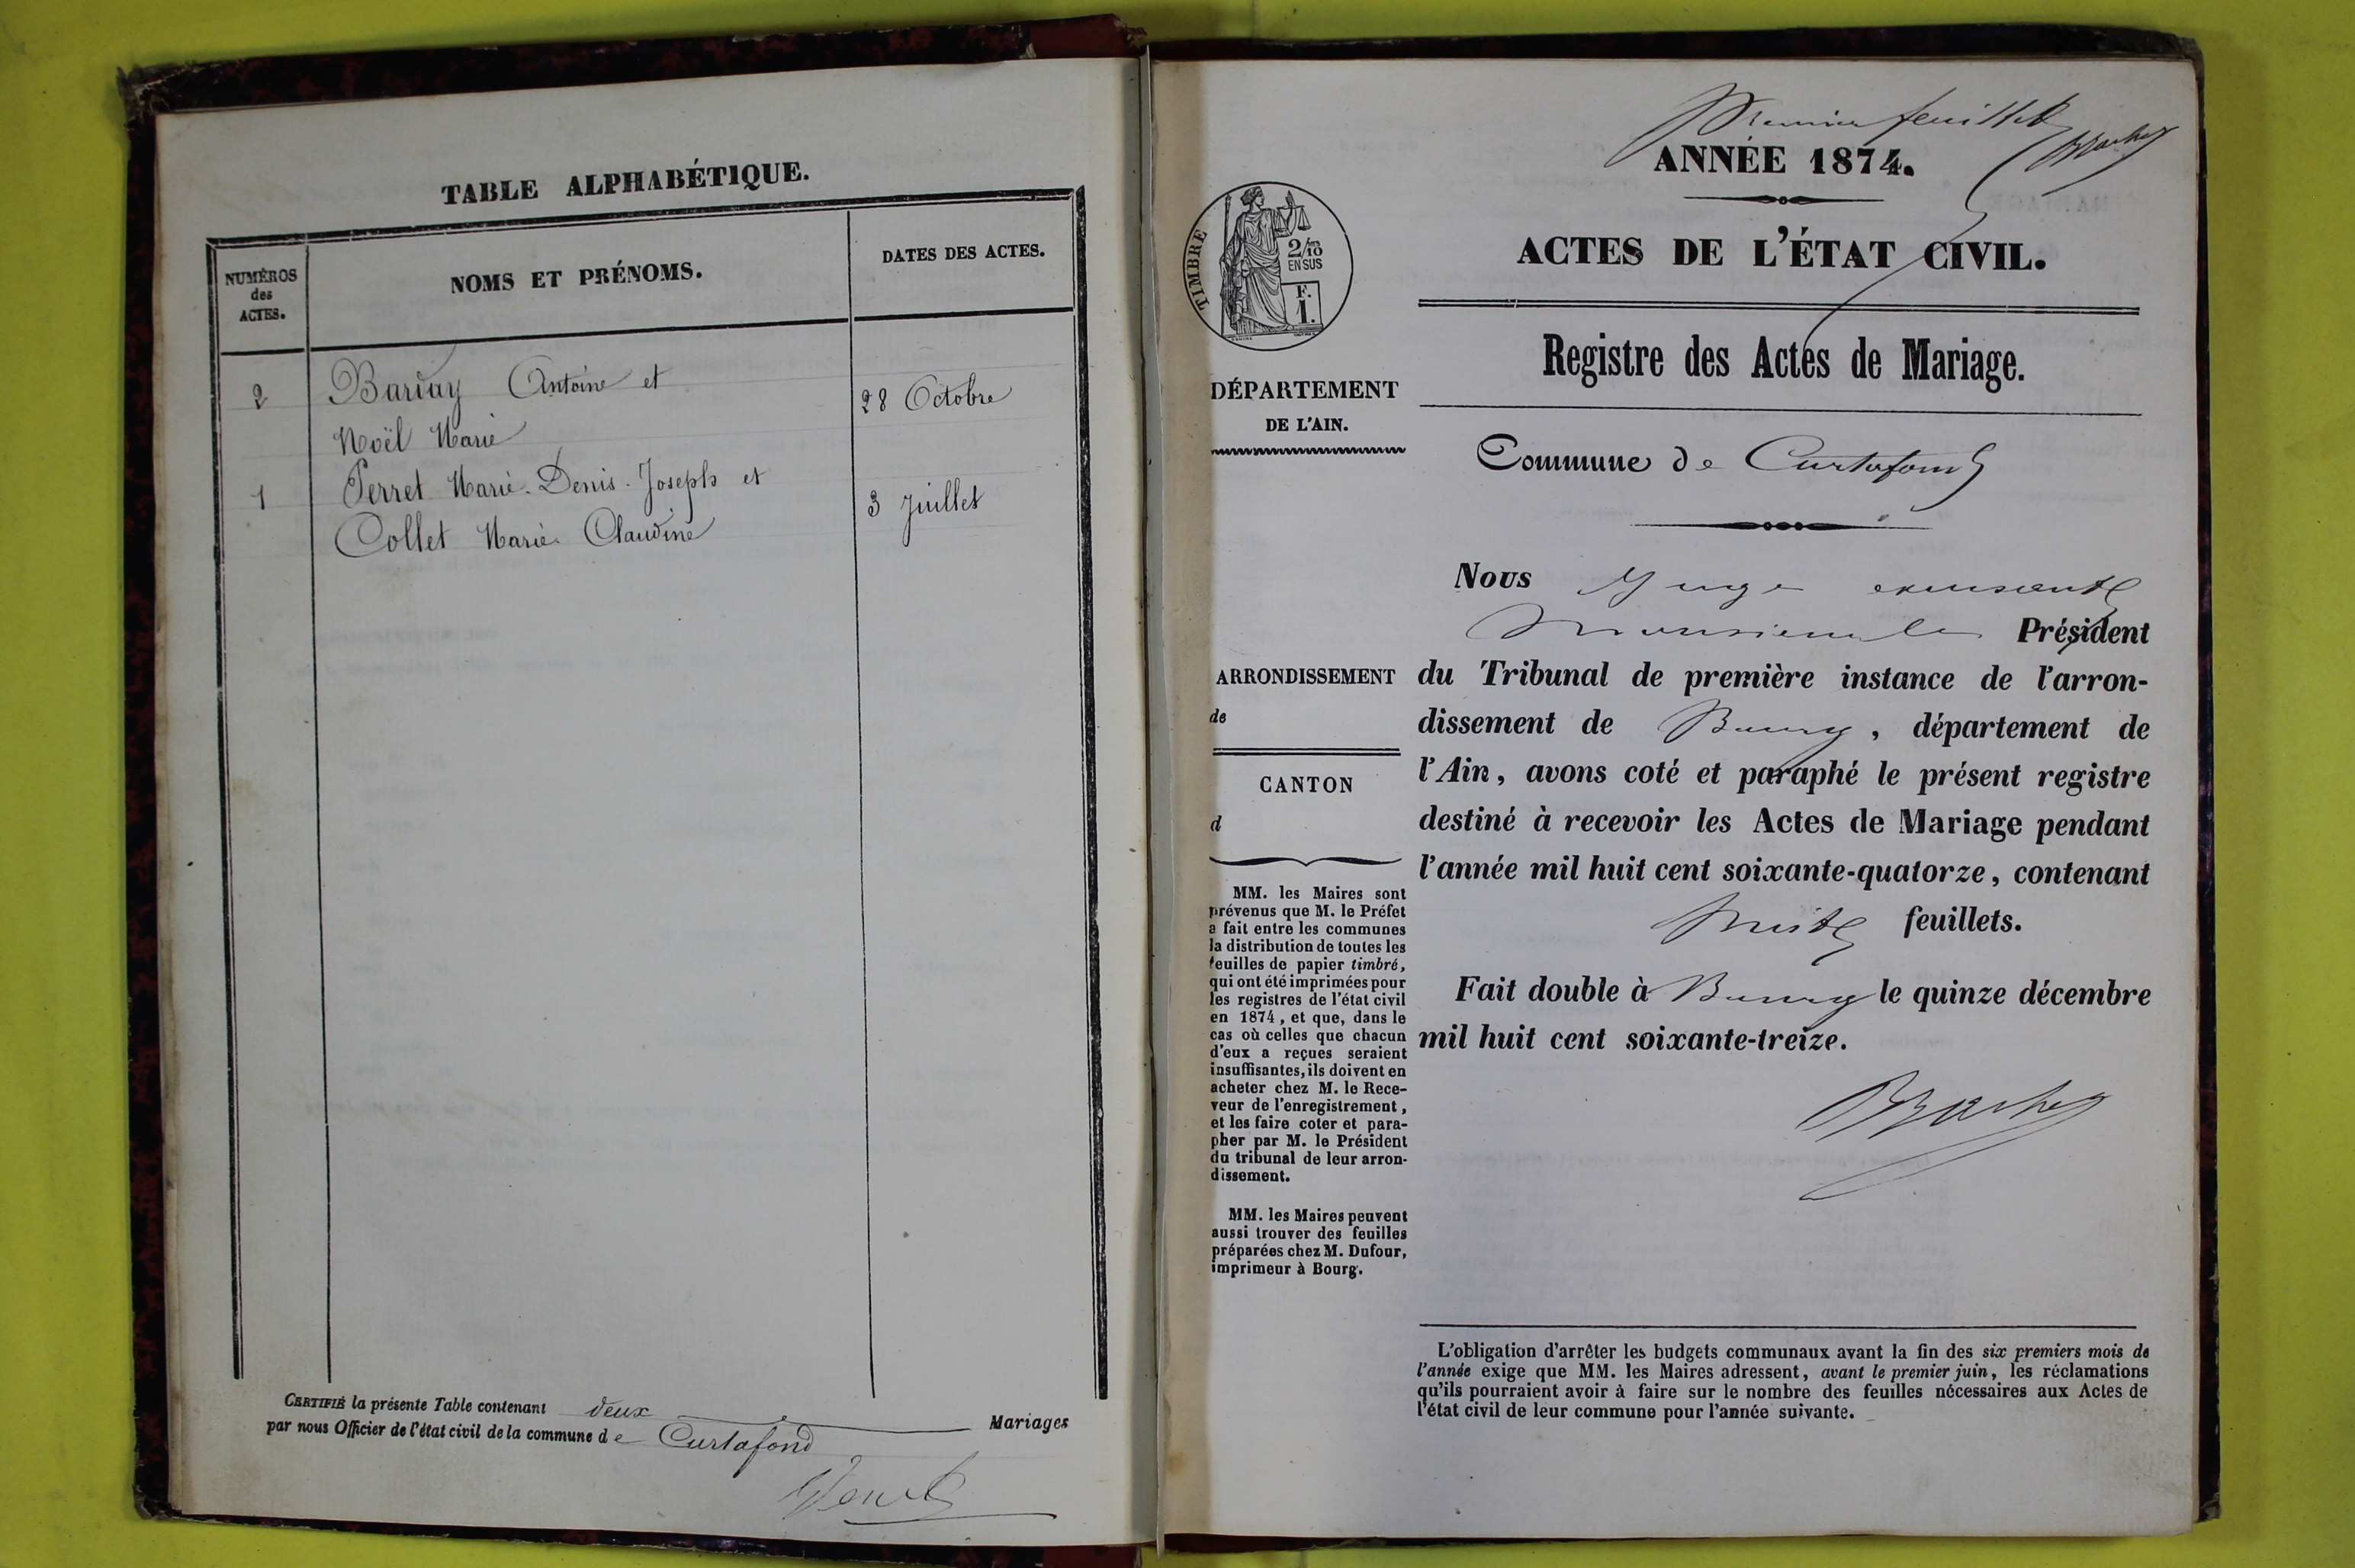 TABLE ALPHABÉTIQUE.
NUMÉROS
des
ACTES.
NOMS ET PRÉNOMS.
DATES DES ACTES.
2 Barday Antoine et 28 Octobre
Noël Marie
1 Perret Marie-Denis-Joseph et 3 Juillet
Collet Marie-Claudine
CERTIFIÉ la présente Table contenant deux Mariages
par nous Officier de l'état civil de la commune de Curtafond
Premier feuillet
ANNÉE 1874.
TIMBRE
2/10
EN SUS
F.
1.
ACTES DE L'ÉTAT CIVIL.
Registre des Actes de Mariage.
DÉPARTEMENT
DE L'AIN.
Commune de Curtafond
Nous Juge
Monsieur le Président
ARRONDISSEMENT
de
du Tribunal de première instance de l'arron-
dissement de Bourg, département de
l'Ain, avons coté et paraphé le présent registre
destiné à recevoir les Actes de Mariage pendant
l'année mil huit cent soixante-quatorze, contenant
huit feuillets.
Fait double à Bourg le quinze décembre
mil huit cent soixante-treize.
CANTON
d
MM. les Maires sont
prévenus que M. le Préfet
a fait entre les communes
la distribution de toutes les
feuilles de papier timbré,
qui ont été imprimées pour
les registres de l'état civil
en 1874, et que, dans le
cas où celles que chacun
d'eux a reçues seraient
insuffisantes, ils doivent en
acheter chez M. le Rece-
veur de l'enregistrement,
et les faire coter et para-
pher par M. le Président
du tribunal de leur arron-
dissement.
MM. les Maires peuvent
aussi trouver des feuilles
préparées chez M. Dufour,
imprimeur à Bourg.
L'obligation d'arrêter les budgets communaux avant la fin des six premiers mois de
l'année exige que MM. les Maires adressent, avant le premier juin, les réclamations
qu'ils pourraient avoir à faire sur le nombre des feuilles nécessaires aux Actes de
l'état civil de leur commune pour l'année suivante.